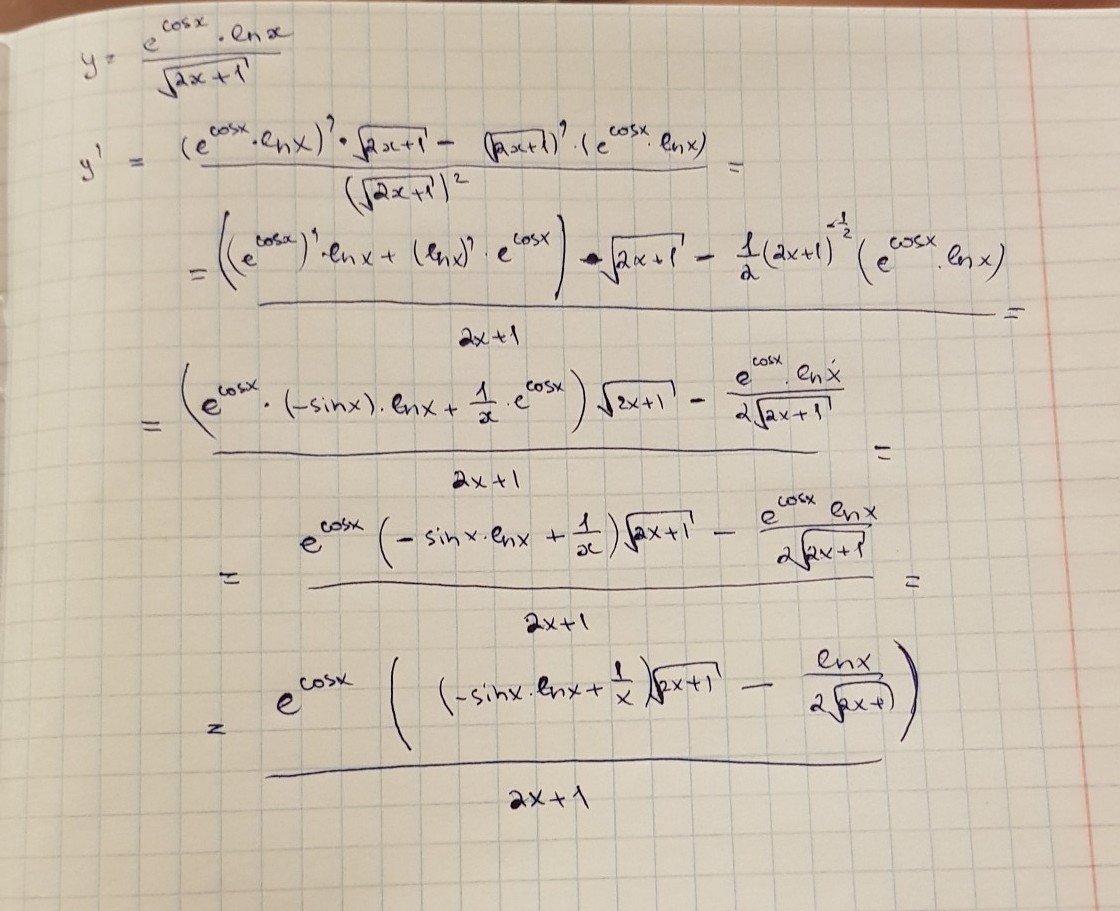 y = (e^cosx · lnx)/(√(2x+1))
y' = ((e^cosx · lnx)' · √(2x+1) − (√(2x+1))' · (e^cosx · lnx))/((√(2x+1))²) =
= (((e^cosx)' · lnx + (lnx)' · e^cosx) · √(2x+1) − 1/2 (2x+1)^(-1/2) (e^cosx · lnx))/(2x+1) =
= ((e^cosx · (−sinx) · lnx + 1/x · e^cosx) √(2x+1) − (e^cosx · lnx)/(2√(2x+1)))/(2x+1) =
= (e^cosx (−sinx · lnx + 1/x) √(2x+1) − (e^cosx lnx)/(2√(2x+1)))/(2x+1) =
= (e^cosx ((−sinx · lnx + 1/x) √(2x+1) − (lnx)/(2√(2x+1))))/(2x+1)